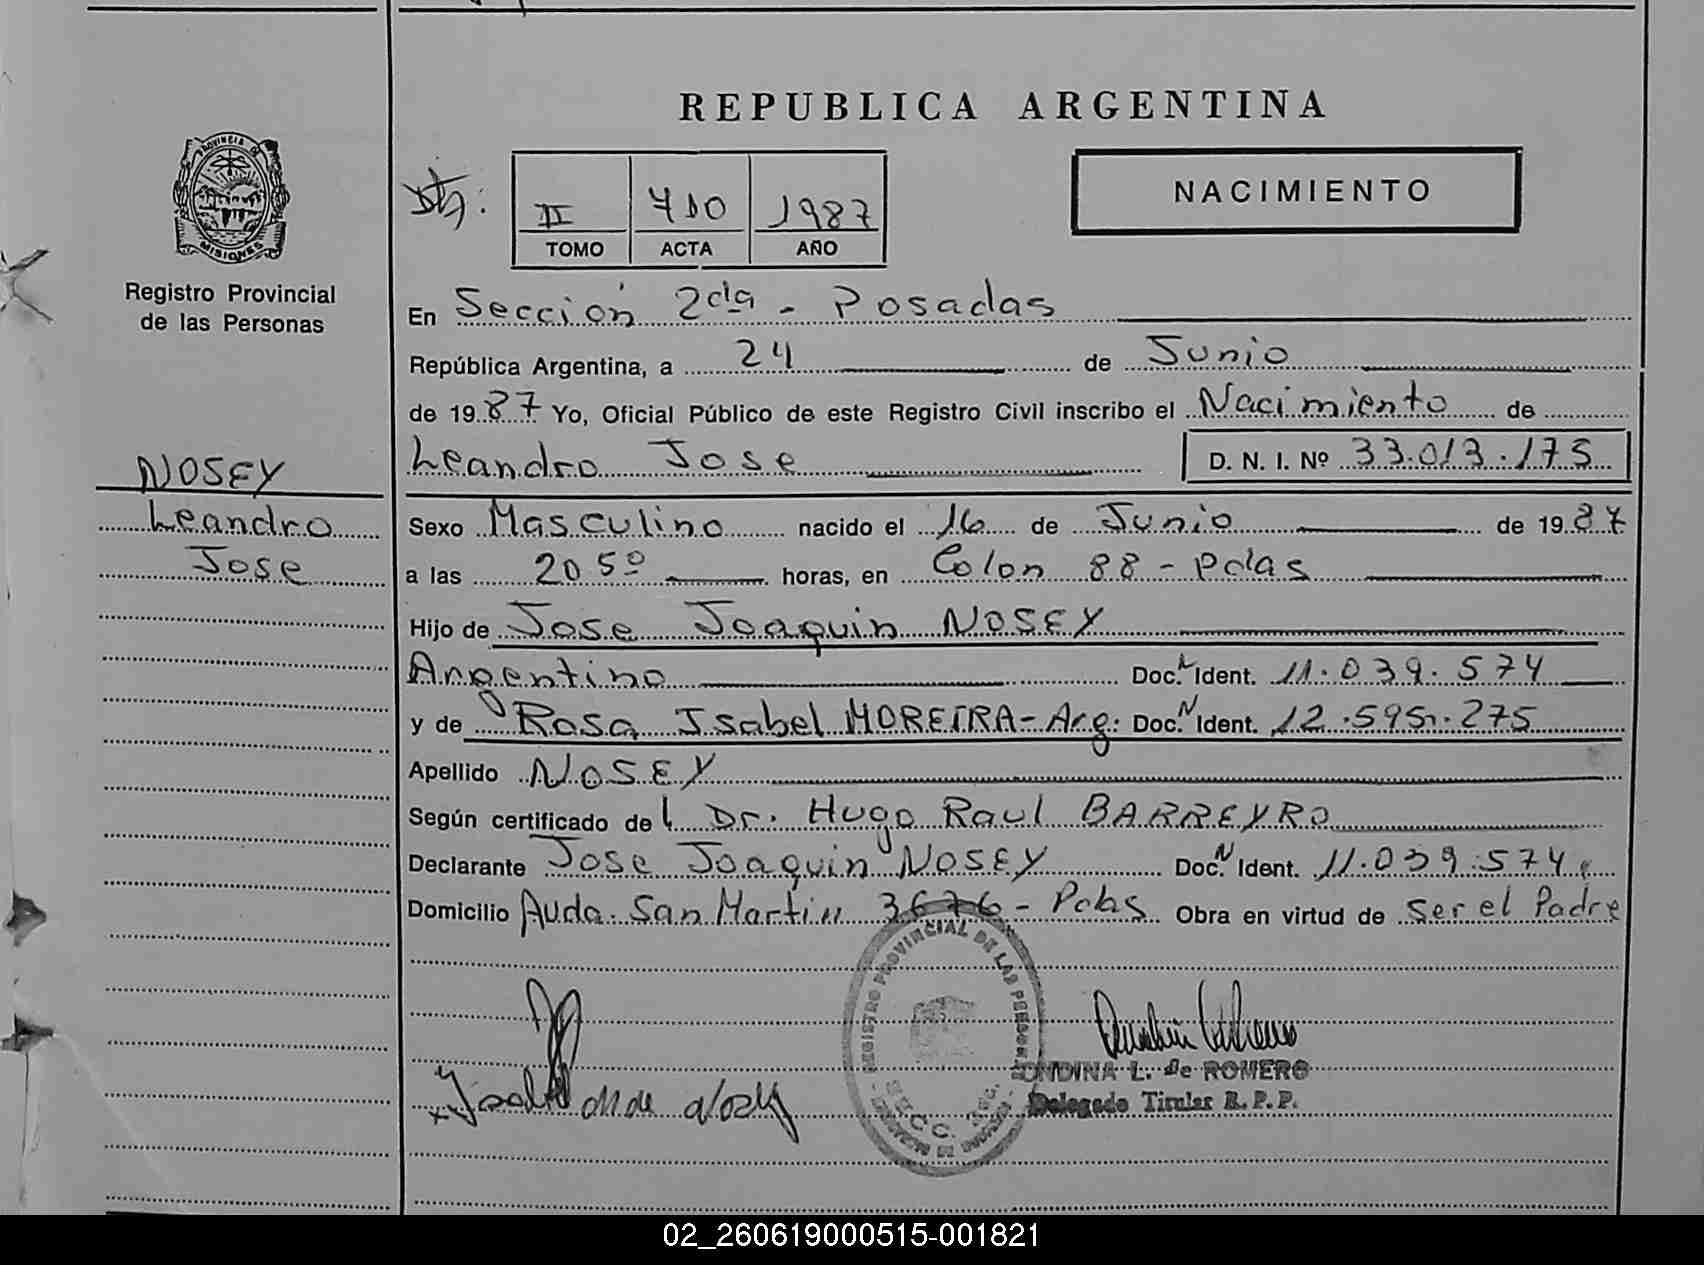 REPUBLICA ARGENTINA
PROVINCIA DE
MISIONES
Registro Provincial
de las Personas
II 710 1987
TOMO ACTA AÑO
NACIMIENTO
En Sección 2da - Posadas
República Argentina, a 24 de Junio
de 1987 Yo, Oficial Público de este Registro Civil inscribo el Nacimiento de
Leandro Jose D. N. I. Nº 33.013.175
NOSEY
Leandro
Jose
Sexo Masculino nacido el 16 de Junio de 1987
a las 20 50 horas, en Colon 88 - Pdas
Hijo de Jose Joaquin NOSEY
Argentino Doc. N Ident. 11.039.574
y de Rosa Isabel MOREIRA - Arg. Doc. N Ident. 12.595.275
Apellido NOSEY
Según certificado del Dr. Hugo Raul BARREYRO
Declarante Jose Joaquin NOSEY Doc. N Ident. 11.039.574
Domicilio Avda. San Martin 3676 - Pdas Obra en virtud de ser el Padre
REGISTRO PROVINCIAL DE LAS PERSONAS
SECC. 2da.
ONDINA L. de ROMERO
Delegado Titular R. P. P.
02_260619000515-001821